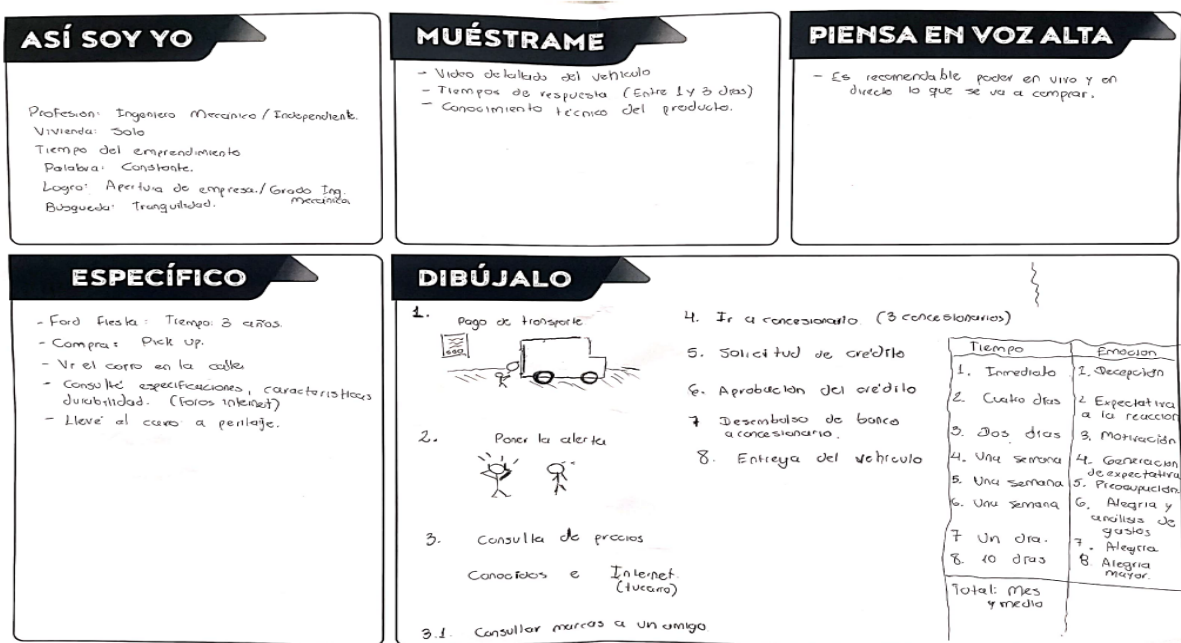 ASÍ SOY YO
Profesion: Ingeniero Mecanico / Independiente.
Vivienda: Solo
Tiempo del emprendimiento
Palabra: Constante.
Logro: Apertura de empresa. / Grado Ing.
Mecanica
Busqueda: Tranquilidad.
MUÉSTRAME
- Video detallado del vehiculo
- Tiempos de respuesta (Entre 1 y 3 dias)
- Conocimiento técnico del producto.
PIENSA EN VOZ ALTA
- Es recomendable poder en vivo y en
directo lo que se va a comprar.
ESPECÍFICO
- Ford Fiesta: Tiempo: 3 años.
- Compra: Pick up.
- Vi el carro en la calle
- Consulté especificaciones, caracteristicas
durabilidad. (Foros internet)
- Llevé al carro a peritaje.
DIBÚJALO
1. Pago de transporte
2. Poner la alerta
3. Consulta de precios
Conocidos e Internet.
(tucarro)
3.1. Consultar marcas a un amigo
4. Ir a concesionario (3 concesionarios)
5. Solicitud de crédito
6. Aprobacion del crédito
7 Desembolso de banco
a concesionario.
8. Entrega del vehiculo
Tiempo Emocion
1. Inmediato 1. Decepción
2. Cuatro dias 2 Expectativa
a la reaccion
3. Dos dias 3. Motivación
4. Una semana 4. Generacion
de expectativa
5. Una semana 5. Preocupación
6. Una semana 6. Alegria y
analisis de
gastos
7 Un dia. 7. Alegria
8. 10 dias 8. Alegria
mayor.
Total: Mes
y medio